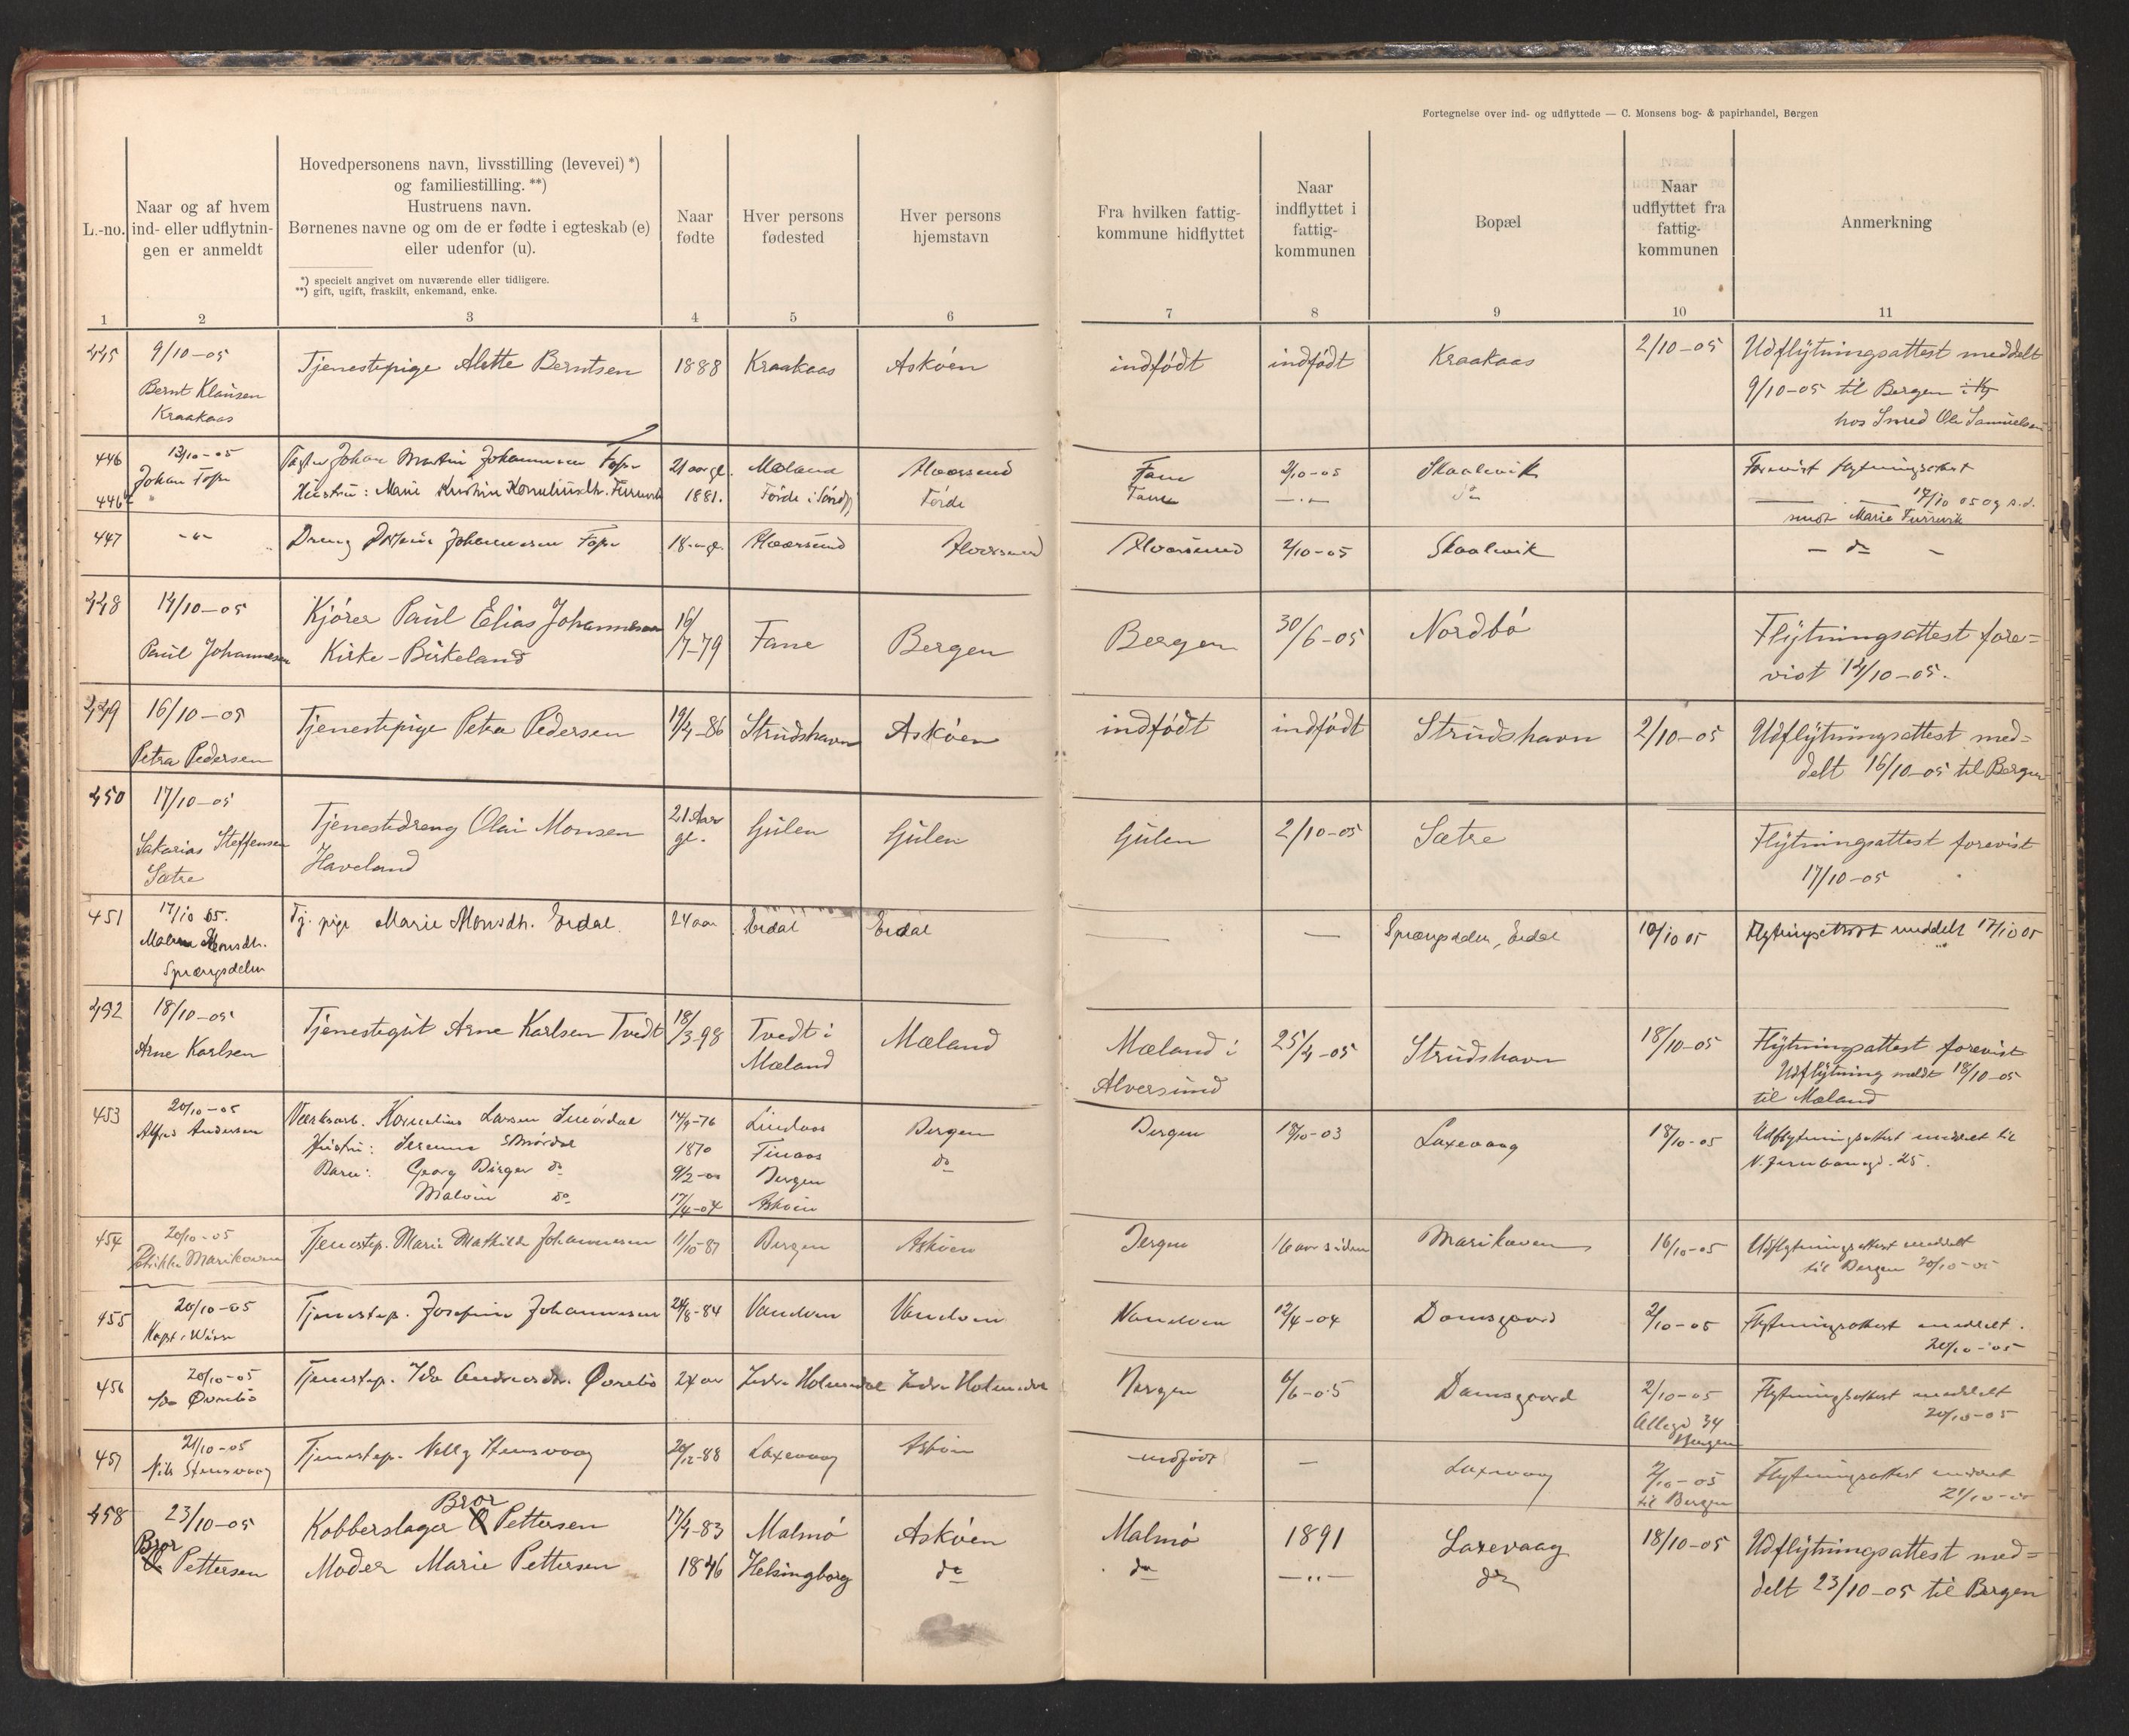 Fortegnelse over ind- og udflyttede — C. Monsens bog- & papirhandel, Bergen
L.-no.
Naar og af hvem
ind- eller udflytnin-
gen er anmeldt
Hovedpersonens navn, livsstilling (levevei) *)
og familiestilling. **)
Hustruens navn.
Børnenes navne og om de er fødte i egteskab (e)
eller udenfor (u).
*) specielt angivet om nuværende eller tidligere.
**) gift, ugift, fraskilt, enkemand, enke.
Naar
fødte
Hver persons
fødested
Hver persons
hjemstavn
Fra hvilken fattig-
kommune hidflyttet
Naar
indflyttet i
fattig-
kommunen
Bopæl
Naar
udflyttet fra
fattig-
kommunen
Anmerkning
1 2 3 4 5 6 7 8 9 10 11
445 9/10-05 Tjenestepige Alette Berntsen 1888 Kraakaas Askøen indfødt indfødt Kraakaas 2/10-05 Udflytningsattest meddelt
Bernt Klausen 9/10-05 til Bergen
Kraakaas hos Smed Ole Samuelsen
446 13/10-05 Johan Martin Johannesen Fosse 21 aar gl. Mæland Alversund Fane 2/10-05 Skaalevik Forevist flytningsattest
Johan Fosse
446b " Hustru: Marie Kristine Korneliusdtr. Furrevik 1881. Førde i Søndfj Førde Fane —"— do 17/10 05 og s.d.
Marie Furrevik
447 —"— Dreng Johannesen Fosse 18 Alversund Alversund Alversund 2/10-05 Skaalevik — do —
448 14/10-05 Kjører Paul Elias Johannesen 16/7-79 Fane Bergen Bergen 30/6-05 Nordbø Flytningsattest fore=
Paul Johannesen Kirke-Birkeland vist 14/10-05.
449 16/10-05 Tjenestepige Petra Pedersen 19/4-86 Strudshavn Askøen indfødt indfødt Strudshavn 2/10-05 Udflytningsattest med=
Petra Pedersen delt 16/10-05 til Bergen
450 17/10-05 Tjenestedreng Olai Monsen 21 Aar Gulen Gulen Gulen 2/10-05 Sætre Flytningsattest forevist
Sakarias Steffensen Haveland gl. 17/10-05
Sætre
451 17/10 05. Tj. pige Marie Monsdtr. Erdal. 24 aar Erdal Erdal — — Sprængsdelen, Erdal 10/10 05 Flytningsattest meddelt 17/10 05
Monsdtr.
Sprængsdelen
452 18/10-05 Tjenestegut Arne Karlsen Tvedt 18/3-98 Tvedt i Mæland Mæland i 25/4-05 Strudshavn 18/10-05 Flytningsattest forevist
Arne Karlsen Mæland Alversund Udflytning meldt 18/10-05
til Mæland
453 20/10-05 Værksarb. Kornelius Larsen Smørdal 14/9-76 Lindaas Bergen Bergen 18/10-03 Laxevaag 18/10-05 Udflytningsattest meddelt til
Alfred Andersen Hustru: Smørdal 1870 Finaas do N. Jernbanegd. 25.
Barn: Georg Birger do 9/2-00 Bergen
Malvin do 17/4-04 Askøen
454 20/10-05 Tjenestep. Marie Mathilde Johannesen 11/10-87 Bergen Askøen Bergen 16 aar siden Marikoven 16/10-05 Udflytningsattest meddelt
Marikoven til Bergen 20/10-05
455 20/10-05 Tjenestep. Josefine Johannesen 24/8-84 Vandven Vandven Vandven 12/4-04 Damsgaard 2/10-05 Flytningsattest meddelt.
20/10-05
456 20/10-05 Tjenestep. Ida Andreasdtr. Øvrebø 24 aar Indre Holmedal Indre Holmedal Bergen 6/6-05 Damsgaard 2/10-05 Flytningsattest meddelt
Ida Øvrebø Allegd 34 20/10-05
Bergen
457 21/10-05 Tjenestep. Nelly Stensvaag 20/12-88 Laxevaag Askøen indfødt — Laxevaag 2/10-05 Flytningsattest meddelt
Nils Stensvaag til Bergen 21/10-05
458 23/10-05 Kobberslager Bror Pettersen 17/4-83 Malmø Askøen Malmø 1891 Laxevaag 18/10-05 Udflytningsattest med=
Bror Pettersen Moder Marie Pettersen 1846 Helsingborg do do —"— do delt 23/10-05 til Bergen